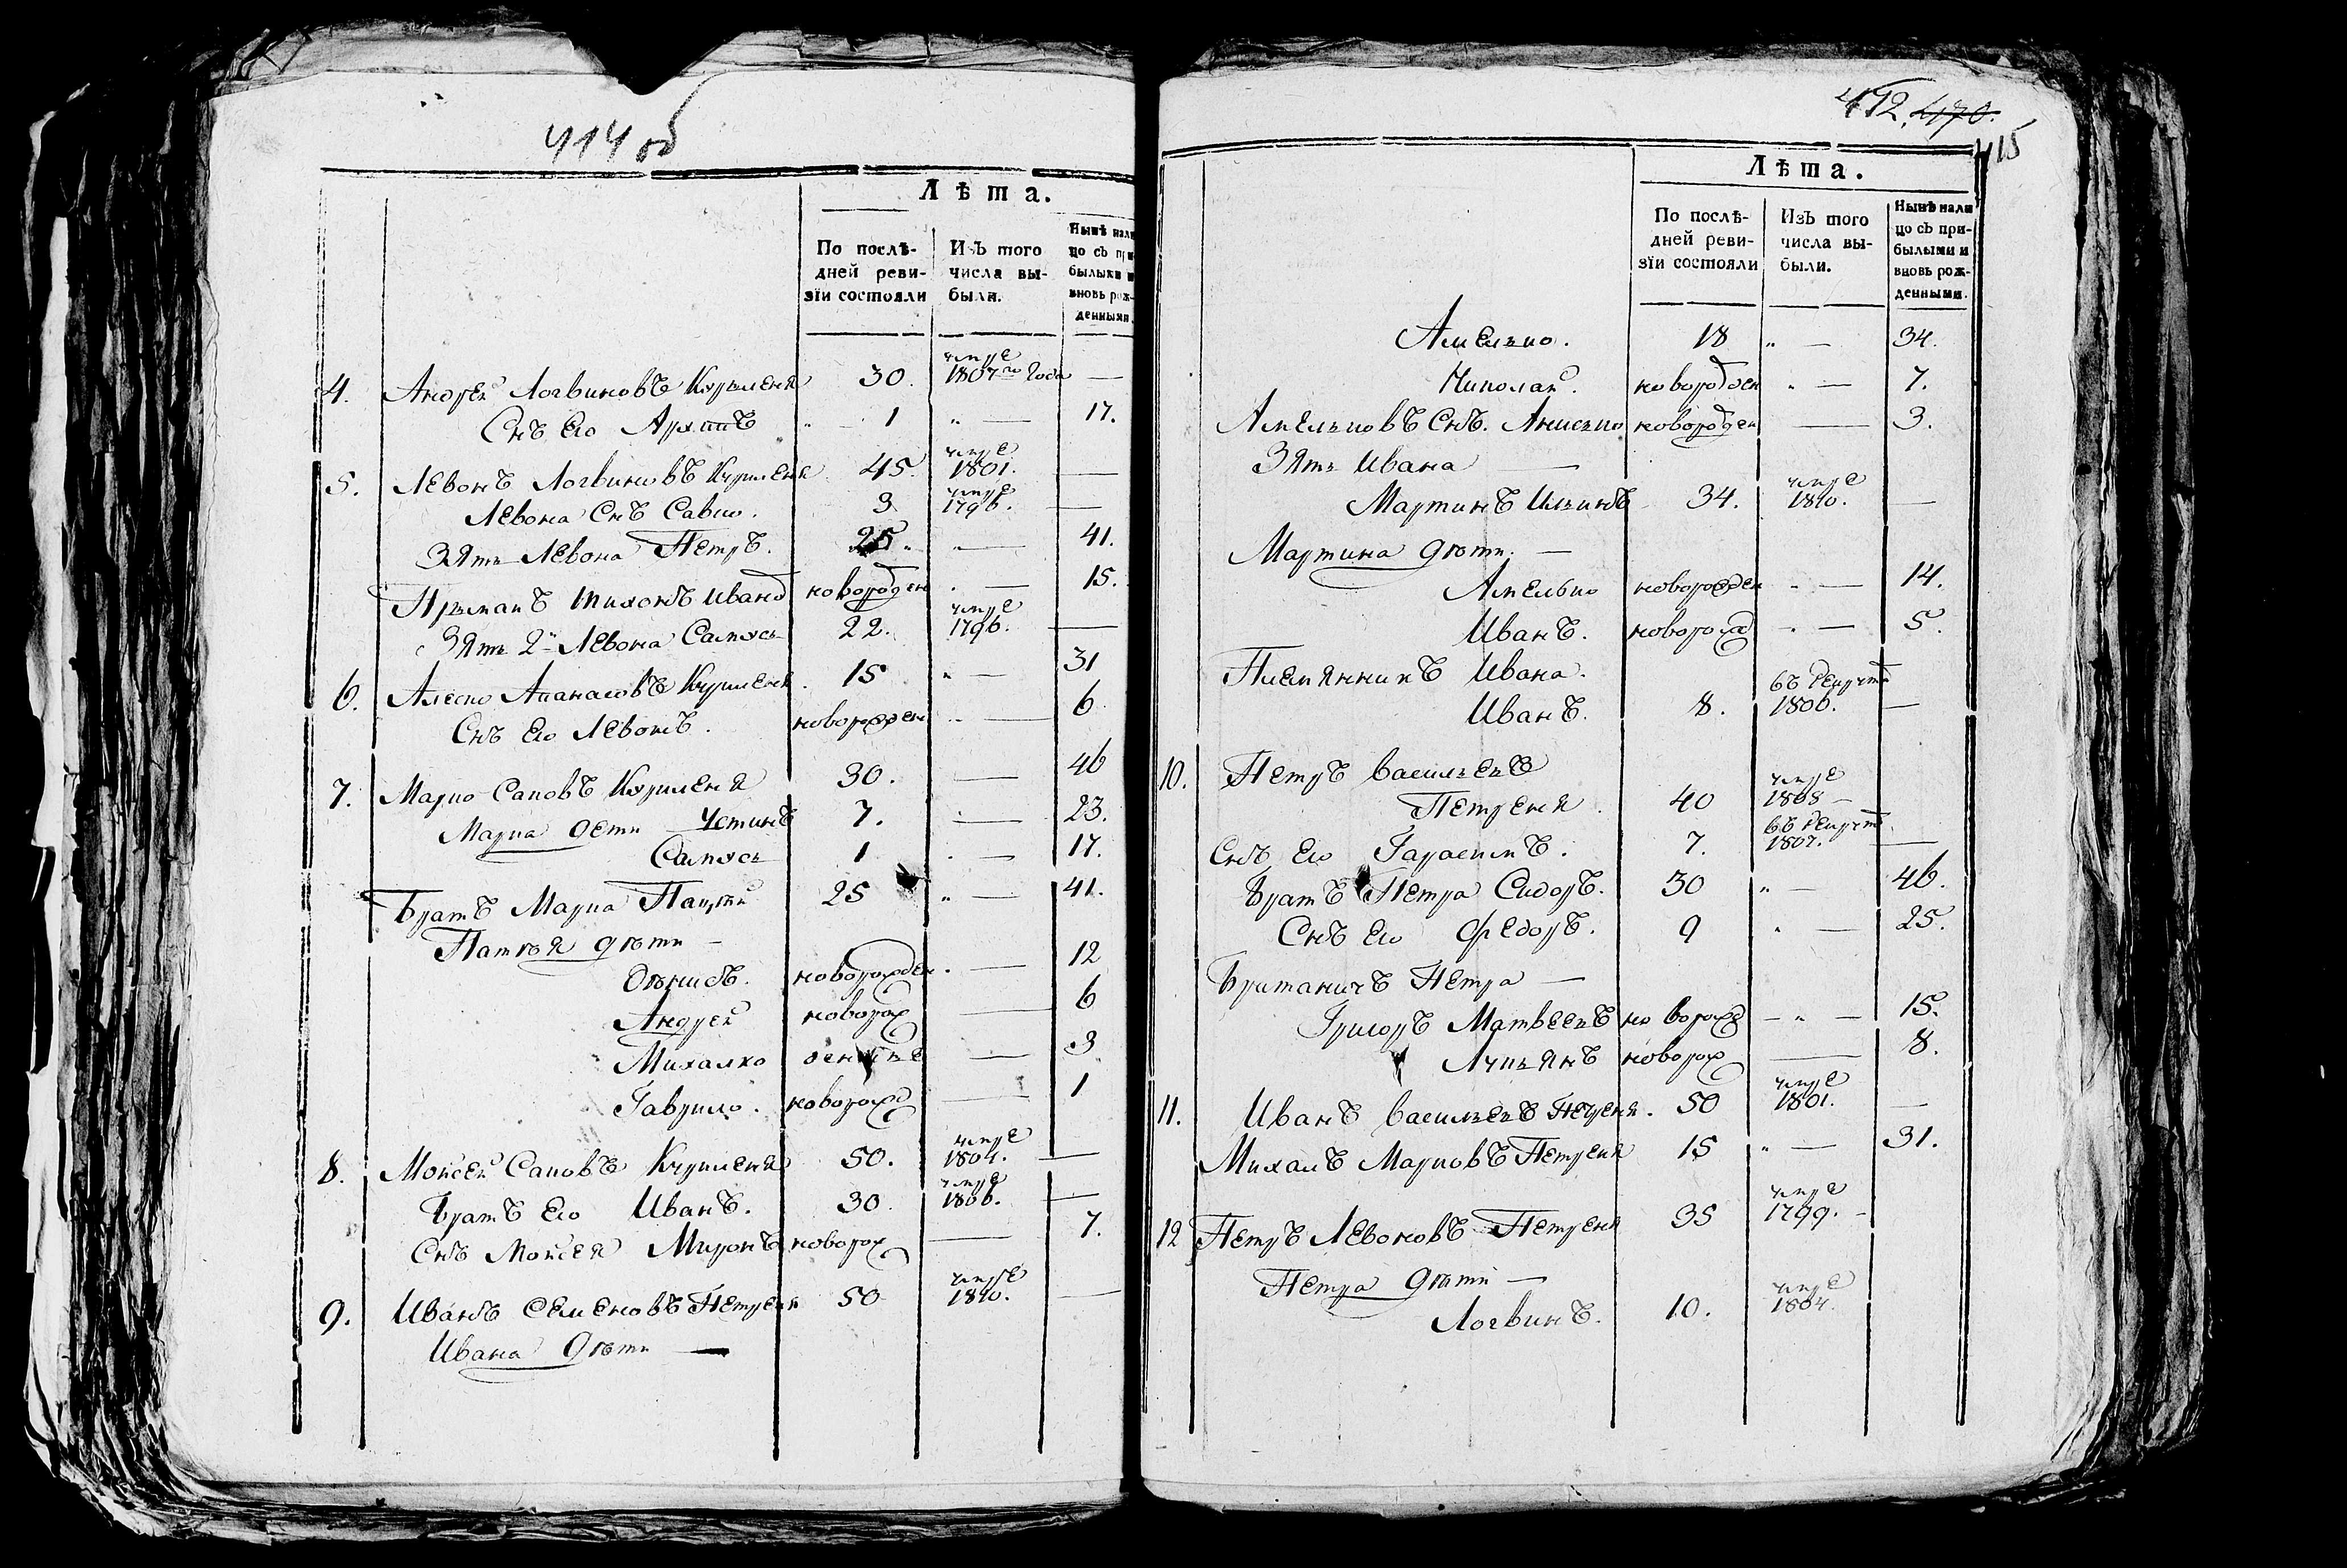 414 об
Лѣта.
По послѣ- дней реви- зїи состояли
Изъ того числа вы- были.
Нынѣ нали цо съ при былыми и вновь рож- денными.
4. Андрей Логвиновъ Куриленя 30. умре 1807го года —
Снъ Его Архипъ „ 1 „ — 17.
5. Левонъ Логвиновъ Куриленя 45 умре 1801. —
Левона Снъ Савко. 3 умре 1796. —
Зять Левона Петръ. 25 „ „ — 41.
Прымакъ Тихонъ Иванов новорожден „ — 15.
Зять 2й Левона Самусь 22. умре 1796. —
6. Алеско Апанасовъ Куриленя. 15 „ — 31
Снъ Его Левонъ. новорожден „ — 6
7. Марко Саковъ Куриленя 30. — 46
Марка дети Устинъ 7. „ — 23.
Самусь 1 „ — 17.
Братъ Марка 25 „ — 41.
дѣти —
новорожден. — 12
Андрей новорож — 6
Михалко — 3
Гаврило. новорожд — 1
8. Мойсей Саковъ Куриленя 50. умре 1804. —
Братъ Его Иванъ. 30. умре 1806. —
Снъ Мойсея Миронъ новорож — 7.
9. Иванъ Семеновъ Петреня 50 умре 1810. —
Ивана дѣти —
412. 470.
415
Лѣта.
По послѣ- дней реви- зїи состояли
Изъ того числа вы- были.
Нынѣ нали цо съ при- былыми и вновь рож- денными.
Амелько. 18 „ — 34.
Николай. новорожден „ — 7.
Амельковъ Снъ. новорожден — 3.
Зять Ивана —
Мартинъ Ильинъ 34. умре 1810. —
Мартина дѣти. —
Амелько новорожден „ — 14.
Иванъ. новорожд „ — 5.
Племянникъ Ивана.
Иванъ. 8. въ рекруты 1806. —
10. Петръ Васильевъ
Петреня. 40 умре 1808 —
Снъ Его Гарасимъ. 7. въ рекруты 1807. —
Братъ Петра Сидоръ. 30 „ — 46.
Снъ Его Федоръ. 9 „ — 25.
Братаничъ Петра —
Григоръ Матвеевъ новорожд — „ — 15.
Лукьянъ новорож — 8.
11. Иванъ Васильевъ Петреня. 50 умре 1801. —
Михалъ Марковъ Петреня 15 „ — 31.
12 Петръ Левоновъ Петреня 35 умре 1799. —
Петра дѣти —
Логвинъ. 10. умре 1804.